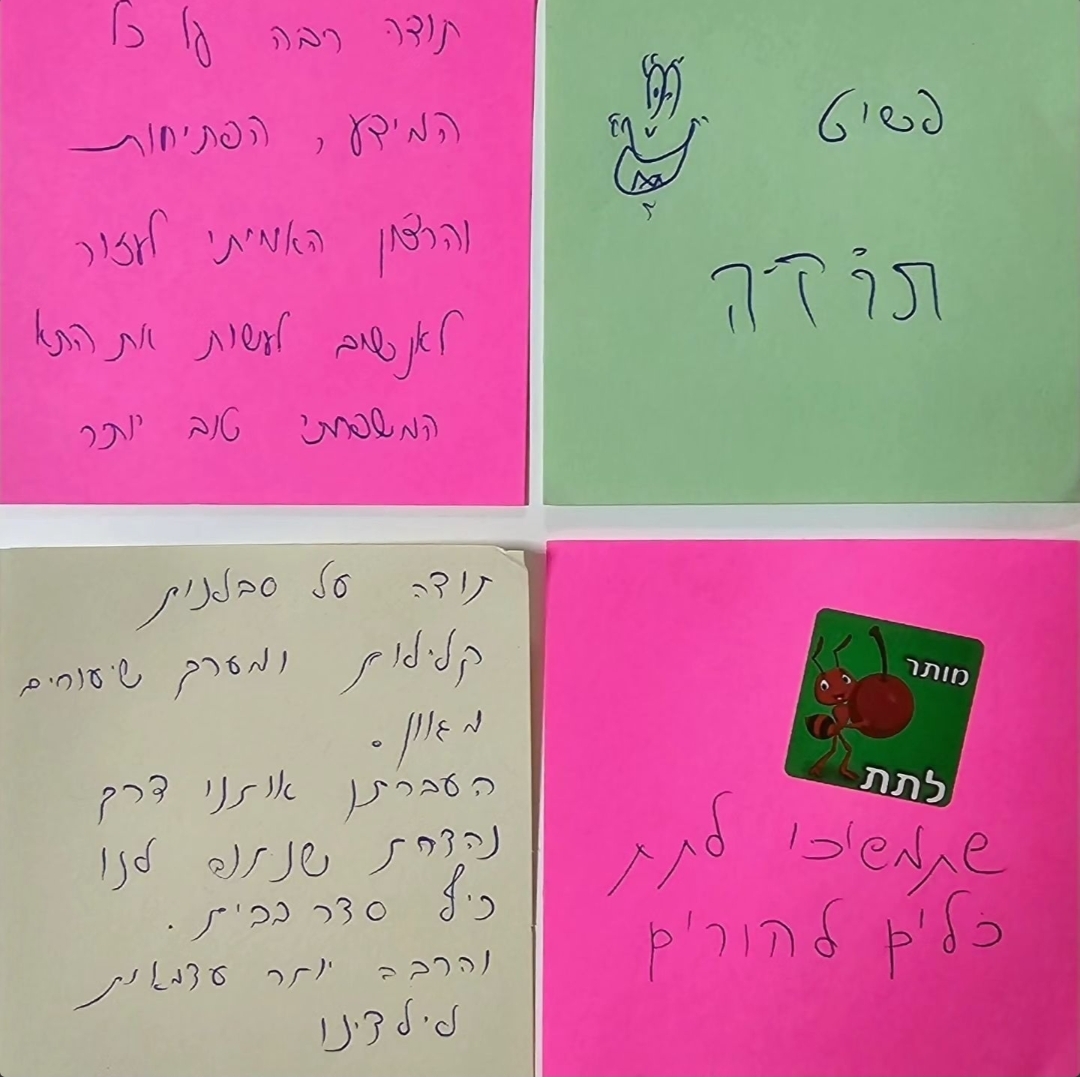 תודה רבה על כל
המידע, הפתיחות
והרצון האמיתי לעזור
לאן נשוב לעשות את התא
המשפחתי טוב יותר
פשוט
תודה
תודה על סבלנות
קלילות ומערך שיעורים
מגוון.
העברתן אותנו דרך
נהדרת שנותנת לנו
כיף סדר בבית.
והרבה יותר עצמאות
לילדינו
מותר
לתת
שתמשיכו לתת
כלים להורים